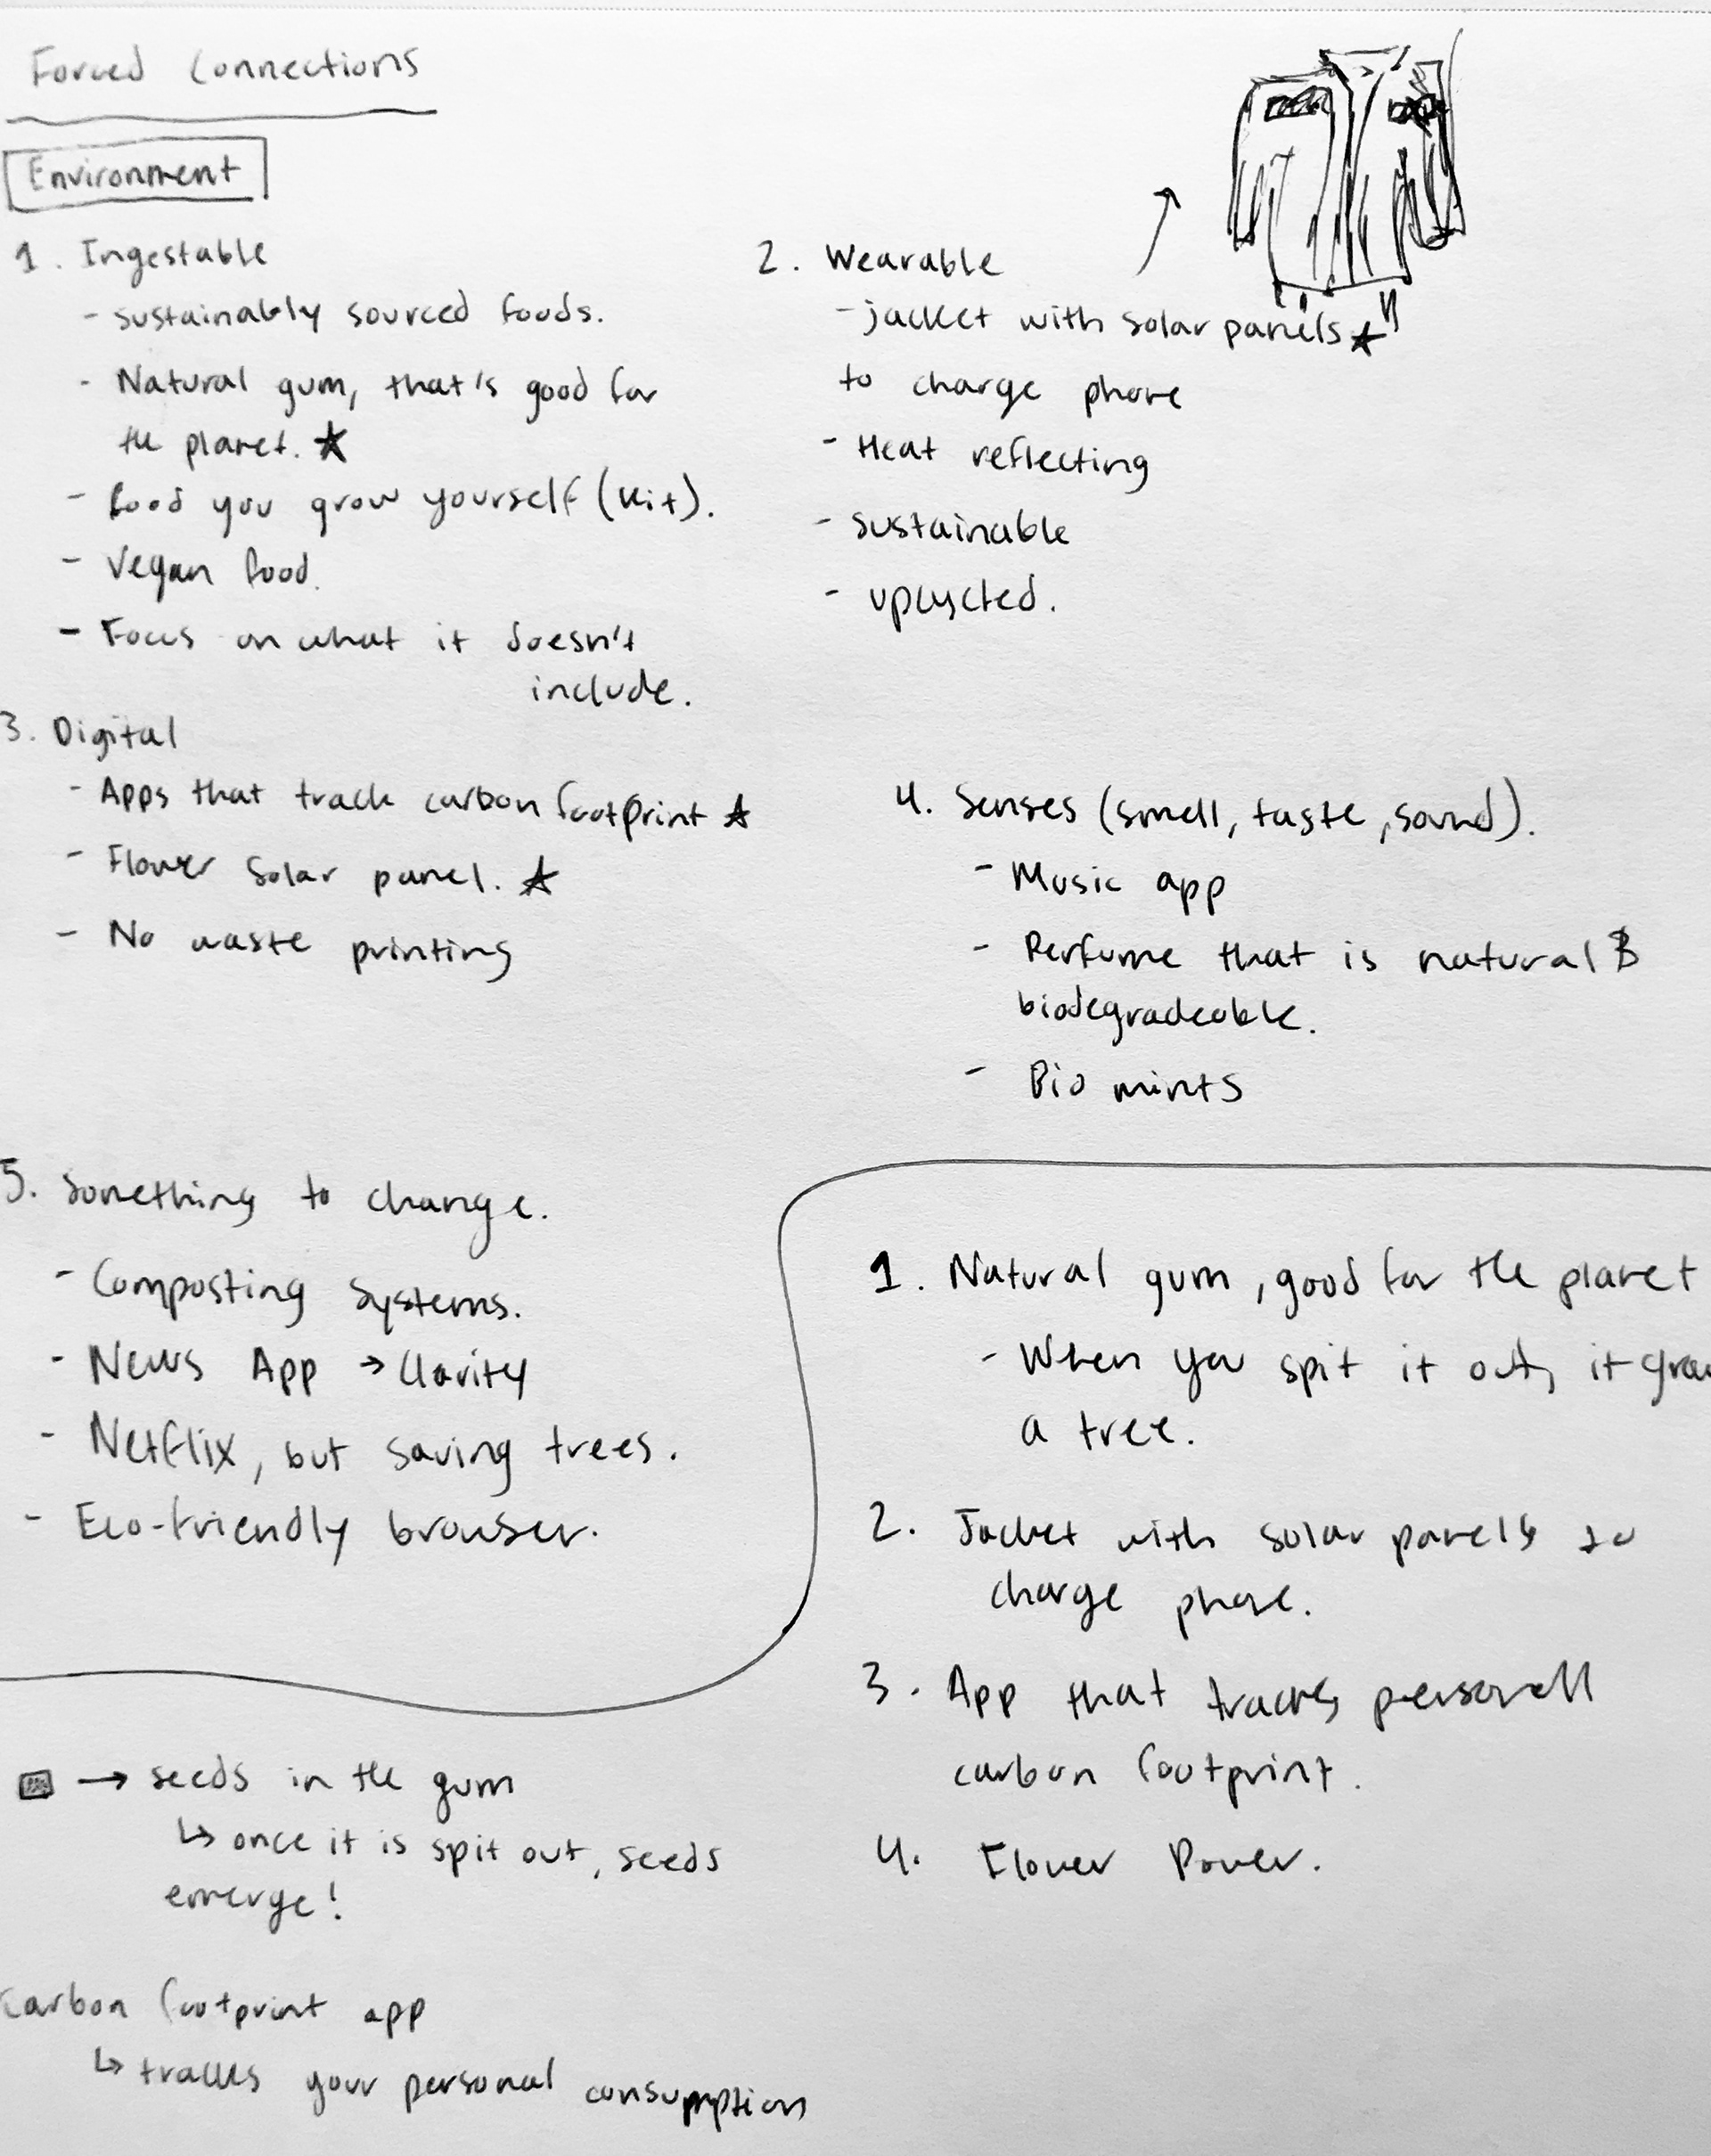 Forced Connections
Environment
1. Ingestable
- sustainably sourced foods.
- Natural gum, that's good for
the planet. ★
- food you grow yourself (kit).
- Vegan food.
- Focus on what it doesn't
include.
2. Wearable
- jacket with solar panels ★
to charge phone
- Heat reflecting
- sustainable
- upcycled.
3. Digital
- Apps that track carbon footprint ★
- Flower Solar panel. ★
- No waste printing
4. Senses (smell, taste, sound).
- Music app
- Perfume that is natural &
biodegradeable.
- Bio mints
5. Something to change.
- Composting Systems.
- News App → Clarity
- Netflix, but saving trees.
- Eco-friendly browser.
1. Natural gum, good for the planet
- When you spit it out, it grow
a tree.
2. Jacket with solar panels to
charge phone.
3. App that tracks personall
carbon footprint.
4. Flower Power.
→ seeds in the gum
↳ once it is spit out, seeds
emerge!
Carbon footprint app
↳ tracks your personal consumption